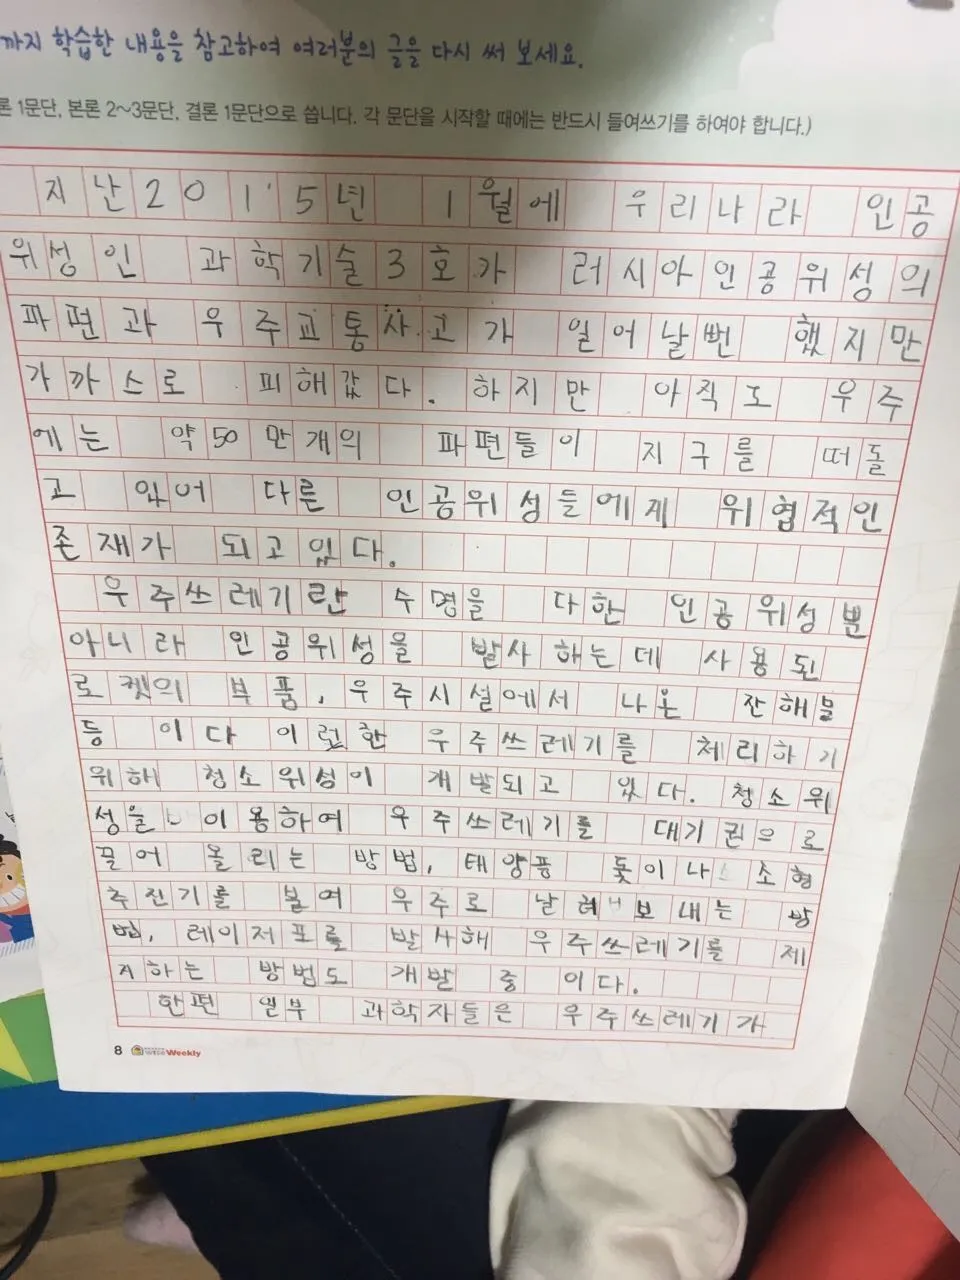 까지 학습한 내용을 참고하여 여러분의 글을 다시 써 보세요.
론 1문단, 본론 2~3문단, 결론 1문단으로 씁니다. 각 문단을 시작할 때에는 반드시 들여쓰기를 하여야 합니다.)
지난2015년 1월에 우리나라 인공
위성인 과학기술3호가 러시아인공위성의
파편과 우주교통사고가 일어날뻔 했지만
가까스로 피해갔다. 하지만 아직도 우주
에는 약50만개의 파편들이 지구를 떠돌
고 있어 다른 인공위성들에게 위협적인
존재가 되고있다.
우주쓰레기란 수명을 다한 인공위성뿐
아니라 인공위성을 발사하는데 사용된
로켓의 부품, 우주시설에서 나온 잔해물
등 이다 이런한 우주쓰레기를 처리하기
위해 청소위성이 개발되고 있다. 청소위
성을 이용하여 우주쓰레기를 대기권으로
끌어 올리는 방법, 태양풍 돛이나 소형
추진기를 붙여 우주로 날려보내는 방
법, 레이저포를 발사해 우주쓰레기를 제
거하는 방법도 개발 중 이다.
한편 일부 과학자들은 우주쓰레기가
8 WISE Weekly